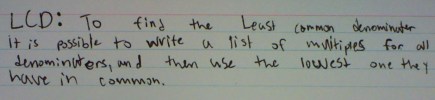 LCD: To find the Least common denominator
it is possible to write a list of multiples for all
denominators, and then use the lowest one they
have in common.